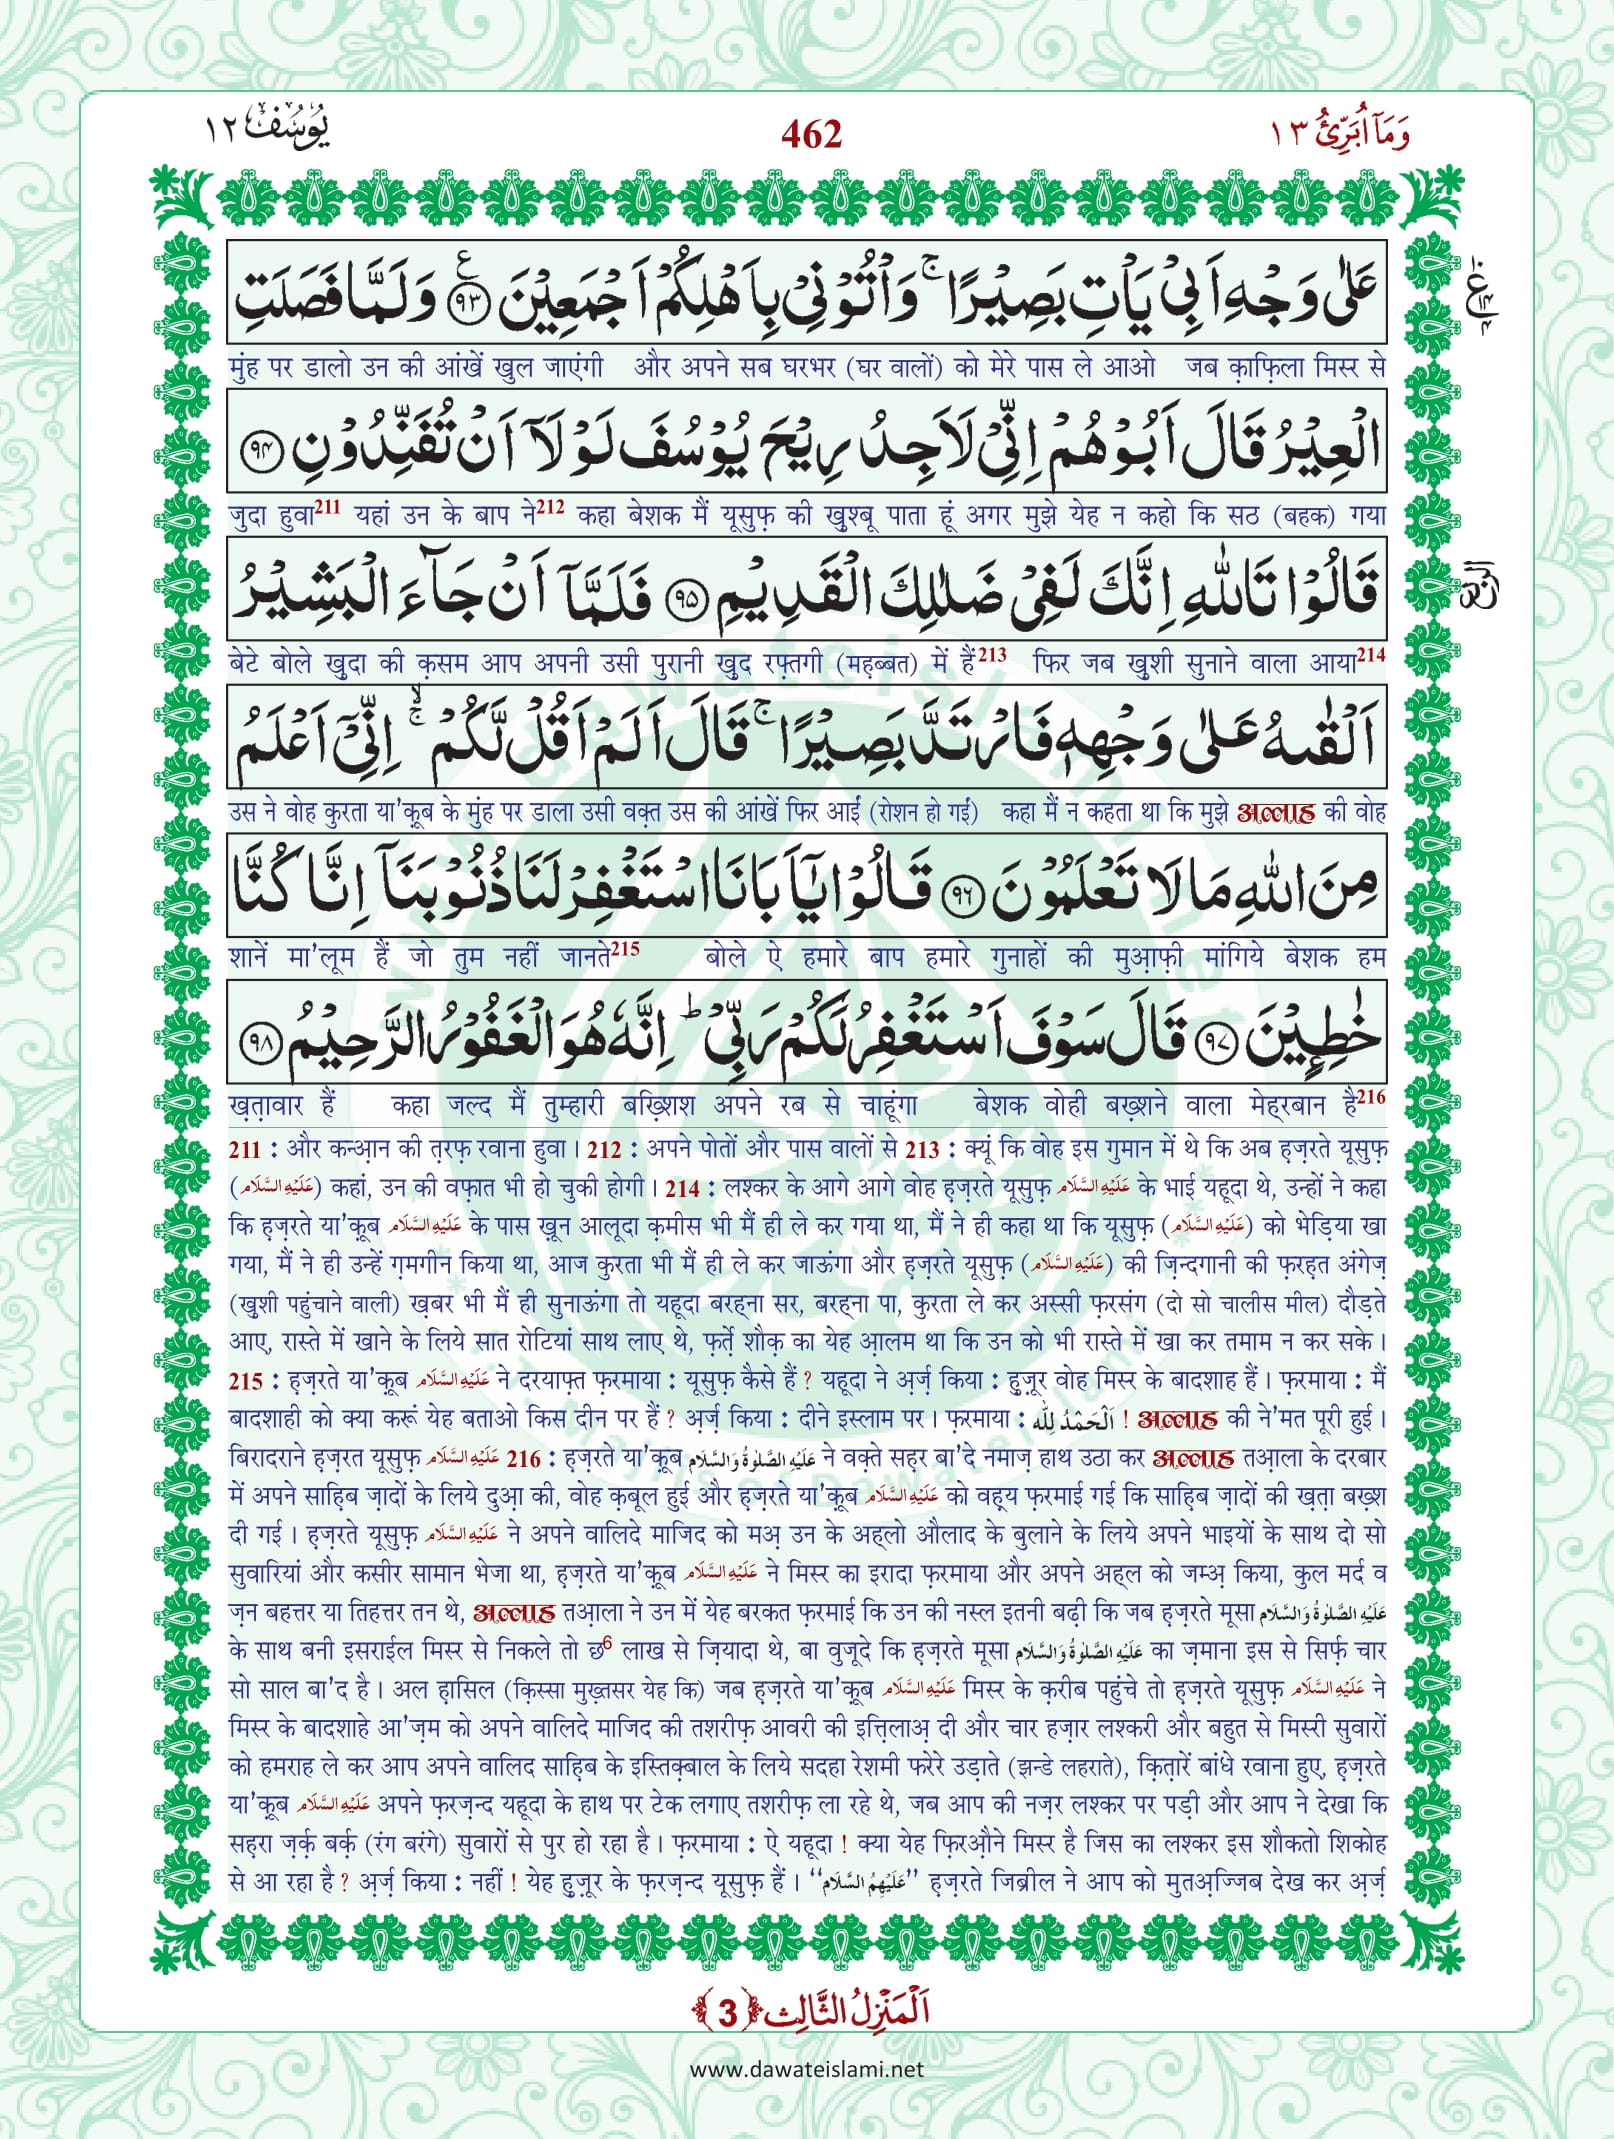 يُوسُف ١٢
462
وَمَآ اُبَرِّئُ ١٣
عَلٰى وَجْهِ اَبِیْ یَاْتِ بَصِیْرًا ۚ وَاْتُوْنِیْ بِاَهْلِكُمْ اَجْمَعِیْنَ ﴿۹۳﴾ وَلَمَّا فَصَلَتِ
मुंह पर डालो उन की आंखें खुल जाएंगी और अपने सब घरभर (घर वालों) को मेरे पास ले आओ जब क़ाफ़िला मिस्र से
الْعِیْرُ قَالَ اَبُوْهُمْ اِنِّیْ لَاَجِدُ رِیْحَ یُوْسُفَ لَوْلَاۤ اَنْ تُفَنِّدُوْنِ ﴿۹۴﴾
जुदा हुवा211 यहां उन के बाप ने212 कहा बेशक मैं यूसुफ़ की खुश्बू पाता हूं अगर मुझे येह न कहो कि सठ (बहक) गया
قَالُوْا تَاللّٰهِ اِنَّكَ لَفِیْ ضَلٰلِكَ الْقَدِیْمِ ﴿۹۵﴾ فَلَمَّاۤ اَنْ جَآءَ الْبَشِیْرُ
बेटे बोले ख़ुदा की क़सम आप अपनी उसी पुरानी ख़ुद रफ़्तगी (महब्बत) में हैं213 फिर जब ख़ुशी सुनाने वाला आया214
اَلْقٰىهُ عَلٰى وَجْهِهٖ فَارْتَدَّ بَصِیْرًا ۚ قَالَ اَلَمْ اَقُلْ لَّكُمْ ۙۚ اِنِّیْۤ اَعْلَمُ
उस ने वोह कुरता या'क़ूब के मुंह पर डाला उसी वक़्त उस की आंखें फिर आईं (रोशन हो गईं) कहा मैं न कहता था कि मुझे अल्लाह की वोह
مِنَ اللّٰهِ مَا لَا تَعْلَمُوْنَ ﴿۹۶﴾ قَالُوْا یٰۤاَبَانَا اسْتَغْفِرْ لَنَا ذُنُوْبَنَاۤ اِنَّا كُنَّا
शानें मा'लूम हैं जो तुम नहीं जानते215 बोले ऐ हमारे बाप हमारे गुनाहों की मुआ़फ़ी मांगिये बेशक हम
خٰطِـِٕیْنَ ﴿۹۷﴾ قَالَ سَوْفَ اَسْتَغْفِرُ لَكُمْ رَبِّیْ ؕ اِنَّهٗ هُوَ الْغَفُوْرُ الرَّحِیْمُ ﴿۹۸﴾
ख़त़ावार हैं कहा जल्द मैं तुम्हारी बख़्शिश अपने रब से चाहूंगा बेशक वोही बख़्शने वाला मेह्रबान है216
211 : और कन्आ़न की त़रफ़ रवाना हुवा । 212 : अपने पोतों और पास वालों से 213 : क्यूं कि वोह इस गुमान में थे कि अब ह़ज़रते यूसुफ़
(عَلَيْهِ السَّلَام) कहां, उन की वफ़ात भी हो चुकी होगी । 214 : लश्कर के आगे आगे वोह ह़ज़रते यूसुफ़ عَلَيْهِ السَّلَام के भाई यहूदा थे, उन्हों ने कहा
कि ह़ज़रते या'क़ूब عَلَيْهِ السَّلَام के पास ख़ून आलूदा क़मीस भी मैं ही ले कर गया था, मैं ने ही कहा था कि यूसुफ़ (عَلَيْهِ السَّلَام) को भेड़िया खा
गया, मैं ने ही उन्हें ग़मगीन किया था, आज कुरता भी मैं ही ले कर जाऊंगा और ह़ज़रते यूसुफ़ (عَلَيْهِ السَّلَام) की ज़िन्दगानी की फ़रह़त अंगेज़
(ख़ुशी पहुंचाने वाली) ख़बर भी मैं ही सुनाऊंगा तो यहूदा बरह्ना सर, बरह्ना पा, कुरता ले कर अस्सी फ़रसंग (दो सो चालीस मील) दौड़ते
आए, रास्ते में खाने के लिये सात रोटियां साथ लाए थे, फ़र्त़े शौक़ का येह आ़लम था कि उन को भी रास्ते में खा कर तमाम न कर सके ।
215 : ह़ज़रते या'क़ूब عَلَيْهِ السَّلَام ने दरयाफ़्त फ़रमाया : यूसुफ़ कैसे हैं ? यहूदा ने अ़र्ज़ किया : हुज़ूर वोह मिस्र के बादशाह हैं । फ़रमाया : मैं
बादशाही को क्या करूं येह बताओ किस दीन पर हैं ? अ़र्ज़ किया : दीने इस्लाम पर । फ़रमाया : اَلْحَمْدُ لِلّٰه ! अल्लाह की ने'मत पूरी हुई ।
बिरादराने ह़ज़रत यूसुफ़ عَلَيْهِ السَّلَام 216 : ह़ज़रते या'क़ूब عَلَيْهِ الصَّلٰوةُ وَالسَّلَام ने वक़्ते सह़र बा'दे नमाज़ हाथ उठा कर अल्लाह तआ़ला के दरबार
में अपने साह़िब ज़ादों के लिये दुआ़ की, वोह क़बूल हुई और ह़ज़रते या'क़ूब عَلَيْهِ السَّلَام को वह़्य फ़रमाई गई कि साह़िब ज़ादों की ख़त़ा बख़्श
दी गई । ह़ज़रते यूसुफ़ عَلَيْهِ السَّلَام ने अपने वालिदे माजिद को मअ़ उन के अह्लो औलाद के बुलाने के लिये अपने भाइयों के साथ दो सो
सुवारियां और कसीर सामान भेजा था, ह़ज़रते या'क़ूब عَلَيْهِ السَّلَام ने मिस्र का इरादा फ़रमाया और अपने अह्ल को जम्अ़ किया, कुल मर्द व
ज़न बहत्तर या तिहत्तर तन थे, अल्लाह तआ़ला ने उन में येह बरकत फ़रमाई कि उन की नस्ल इतनी बढ़ी कि जब ह़ज़रते मूसा عَلَيْهِ الصَّلٰوةُ وَالسَّلَام
के साथ बनी इसराईल मिस्र से निकले तो छ6 लाख से ज़ियादा थे, बा वुजूदे कि ह़ज़रते मूसा عَلَيْهِ الصَّلٰوةُ وَالسَّلَام का ज़माना इस से सिर्फ़ चार
सो साल बा'द है । अल ह़ासिल (क़िस्सा मुख़्तसर येह कि) जब ह़ज़रते या'क़ूब عَلَيْهِ السَّلَام मिस्र के क़रीब पहुंचे तो ह़ज़रते यूसुफ़ عَلَيْهِ السَّلَام ने
मिस्र के बादशाहे आ'ज़म को अपने वालिदे माजिद की तशरीफ़ आवरी की इत्तिलाअ़ दी और चार हज़ार लश्करी और बहुत से मिस्री सुवारों
को हमराह ले कर आप अपने वालिद साह़िब के इस्तिक़्बाल के लिये सदहा रेशमी फरेरे उड़ाते (झन्डे लहराते), क़ित़ारें बांधे रवाना हुए, ह़ज़रते
या'क़ूब عَلَيْهِ السَّلَام अपने फ़रज़न्द यहूदा के हाथ पर टेक लगाए तशरीफ़ ला रहे थे, जब आप की नज़र लश्कर पर पड़ी और आप ने देखा कि
सह़रा ज़र्क़ बर्क़ (रंग बरंगे) सुवारों से पुर हो रहा है । फ़रमाया : ऐ यहूदा ! क्या येह फ़िरऔ़ने मिस्र है जिस का लश्कर इस शौकतो शिकोह
से आ रहा है ? अ़र्ज़ किया : नहीं ! येह हुज़ूर के फ़रज़न्द यूसुफ़ हैं । ‘‘عَلَيْهِمُ السَّلَام’’ ह़ज़रते जिब्रील ने आप को मुतअ़ज्जिब देख कर अ़र्ज़
اَلْمَنْزِلُ الثَّالِث ﴿3﴾
www.dawateislami.net